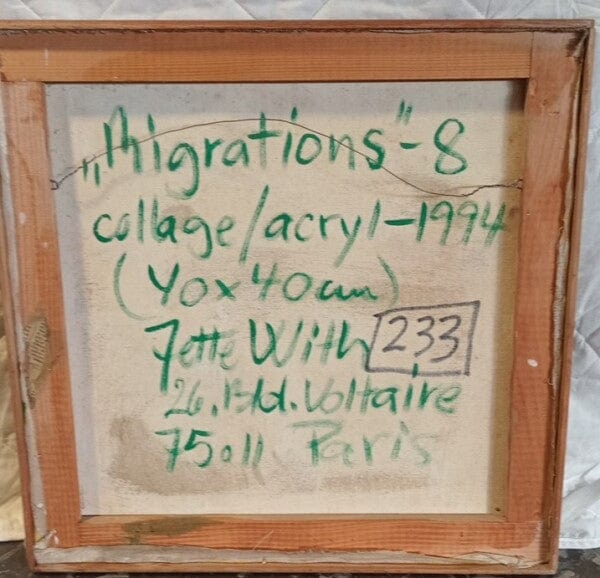 „Migrations"-8
collage/acryl-1994
(40x40cm)
Jette With 233
26, Bld. Voltaire
75011 Paris